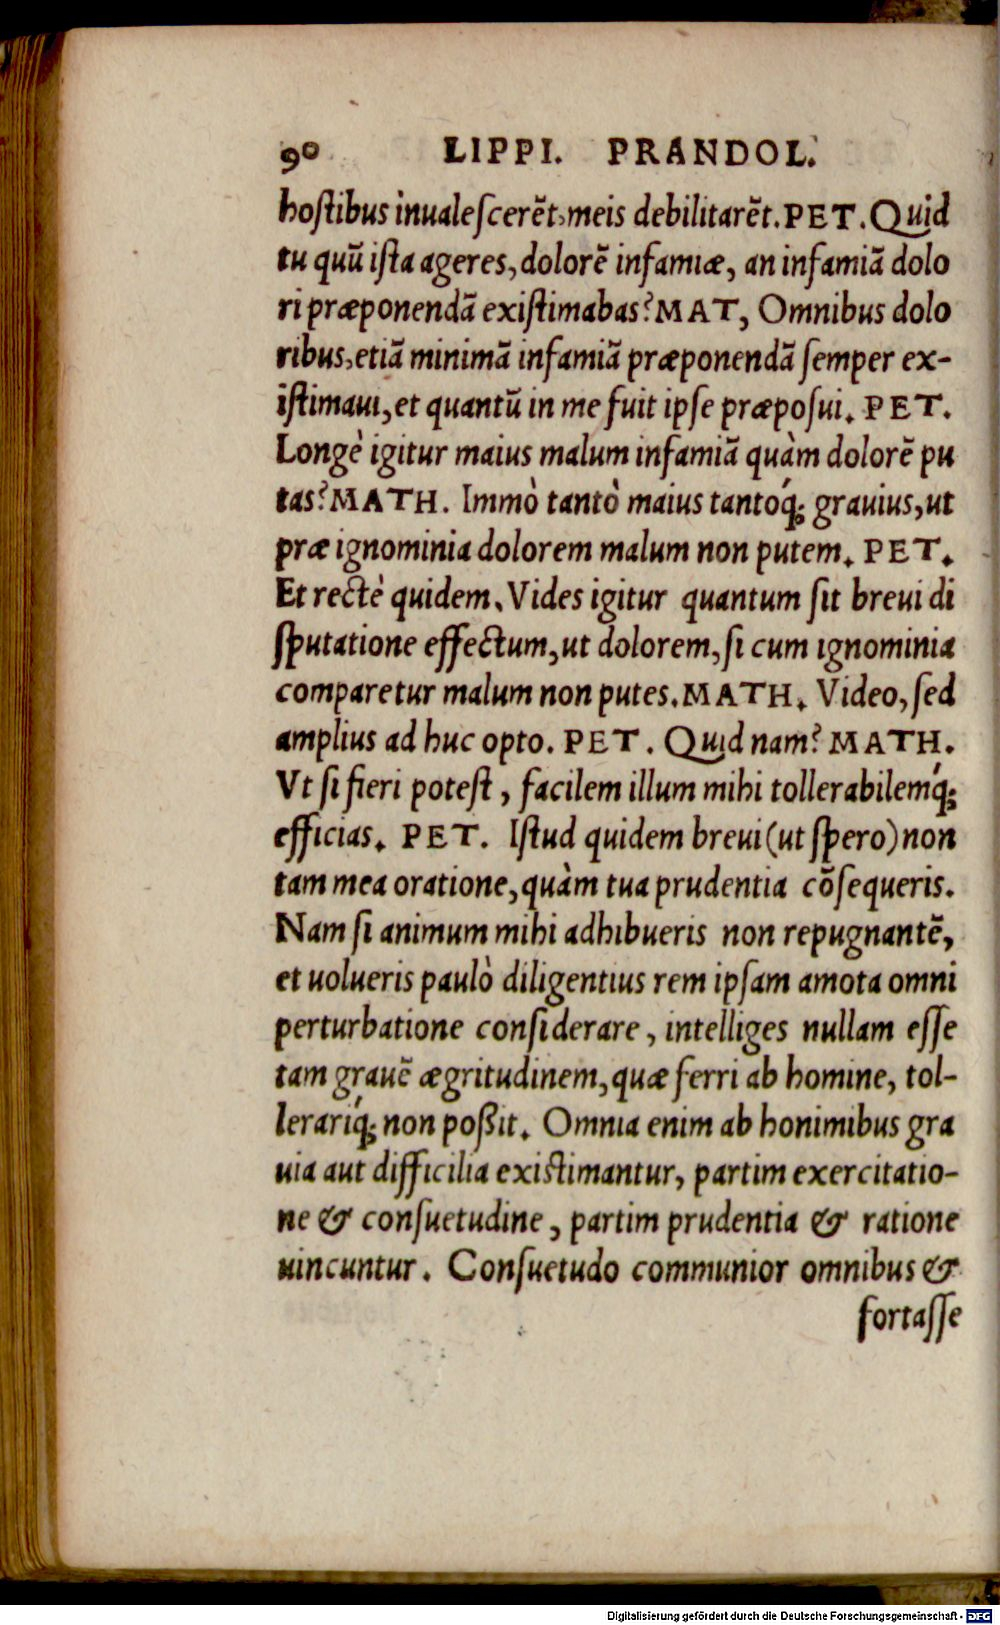 90 LIPPI. PRANDOL.
hoſtibus inualeſcerẽt, meis debilitarẽt. PET. Quid
tu quũ iſta ageres, dolorẽ infamiæ, an infamiã dolo
ri præponendã exiſtimabas? MAT, Omnibus dolo
ribus, etiã minimã infamiã præponendã ſemper ex-
iſtimaui, et quantũ in me fuit ipſe præpoſui. PET.
Longè igitur maius malum infamiã quàm dolorẽ pu
tas? MATH. Immò tantò maius tantoq́; grauius, ut
præ ignominia dolorem malum non putem. PET.
Et rectè quidem. Vides igitur quantum ſit breui di
ſputatione effectum, ut dolorem, ſi cum ignominia
comparetur malum non putes. MATH. Video, ſed
amplius ad huc opto. PET. Quid nam? MATH.
Vt ſi fieri poteſt, facilem illum mihi tollerabilemq́;
efficias. PET. Iſtud quidem breui (ut ſpero) non
tam mea oratione, quàm tua prudentia cõſequeris.
Nam ſi animum mihi adhibueris non repugnantẽ,
et uolueris paulò diligentius rem ipſam amota omni
perturbatione conſiderare, intelliges nullam eſſe
tam grauẽ ægritudinem, quæ ferri ab homine, tol-
lerariq́; non poßit. Omnia enim ab honimibus gra
uia aut difficilia exiſtimantur, partim exercitatio-
ne & conſuetudine, partim prudentia & ratione
uincuntur. Conſuetudo communior omnibus &
fortaſſe
Digitalisierung gefördert durch die Deutsche Forschungsgemeinschaft - DFG